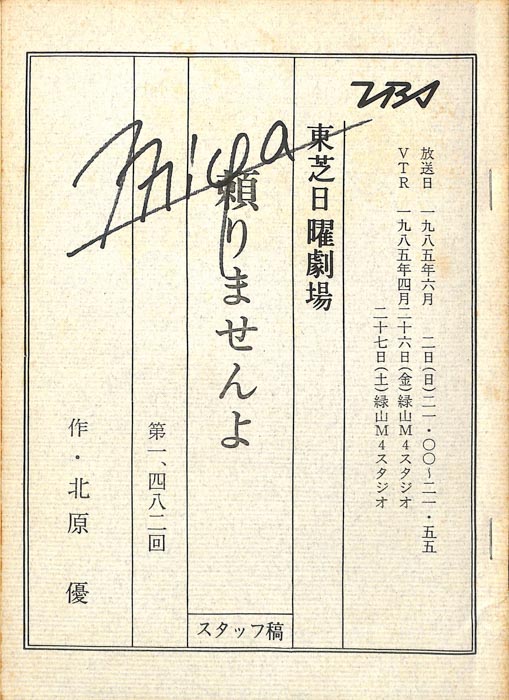 TBS
放送日 一九八五年六月 二日(日)二一・〇〇~二一・五五
VTR 一九八五年四月二十六日(金)緑山M4スタジオ
二十七日(土)緑山M4スタジオ
東芝日曜劇場
頼りませんよ
スタッフ稿
第一、四八二回
作・北原 優